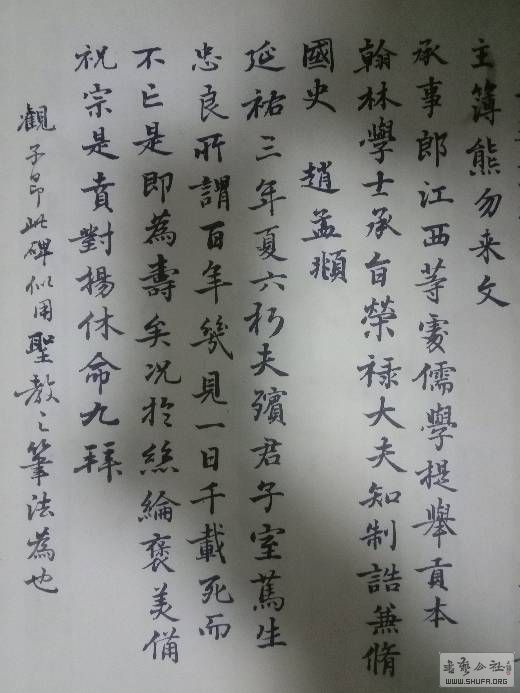 主簿熊勿来文
承事郎江西等處儒學提舉貢本
翰林學士承旨榮禄大夫知制誥兼脩
國史 趙孟頫
延祐三年夏六初夫殯君子室蔿生
忠良所謂百年幾見一日千載死而
不亡是即為壽矣况於絲綸褒美備
祝宗是賁對揚休命九拜
觀子昂此碑似用聖教之筆法為也
書藝公社
WWW.SHUFR.ORG